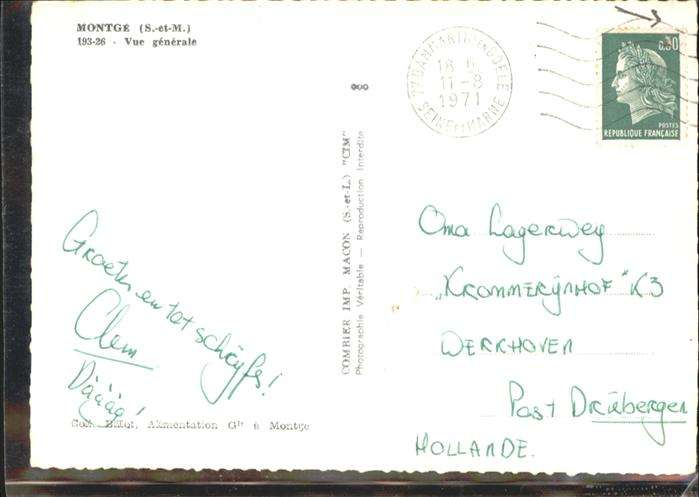 MONTGÉ (S.-et-M.)
193-26 - Vue générale
77 DAMMARTIN-EN-GOELE
18 H
11-8
1971
SEINE ET MARNE
0,30
POSTES
REPUBLIQUE FRANÇAISE
COMBIER IMP. MACON (S.-et-L.) "CIM"
Photographie Véritable — Reproduction Interdite
Groeten en tot schrijfs!
Clem
Dáááág!
Alimentation Gle à Montge
Oma Lagerweg
„KROMMERIJNHOF" K3
WERKHOVEN
Post DRIEBERGEN
HOLLANDE.